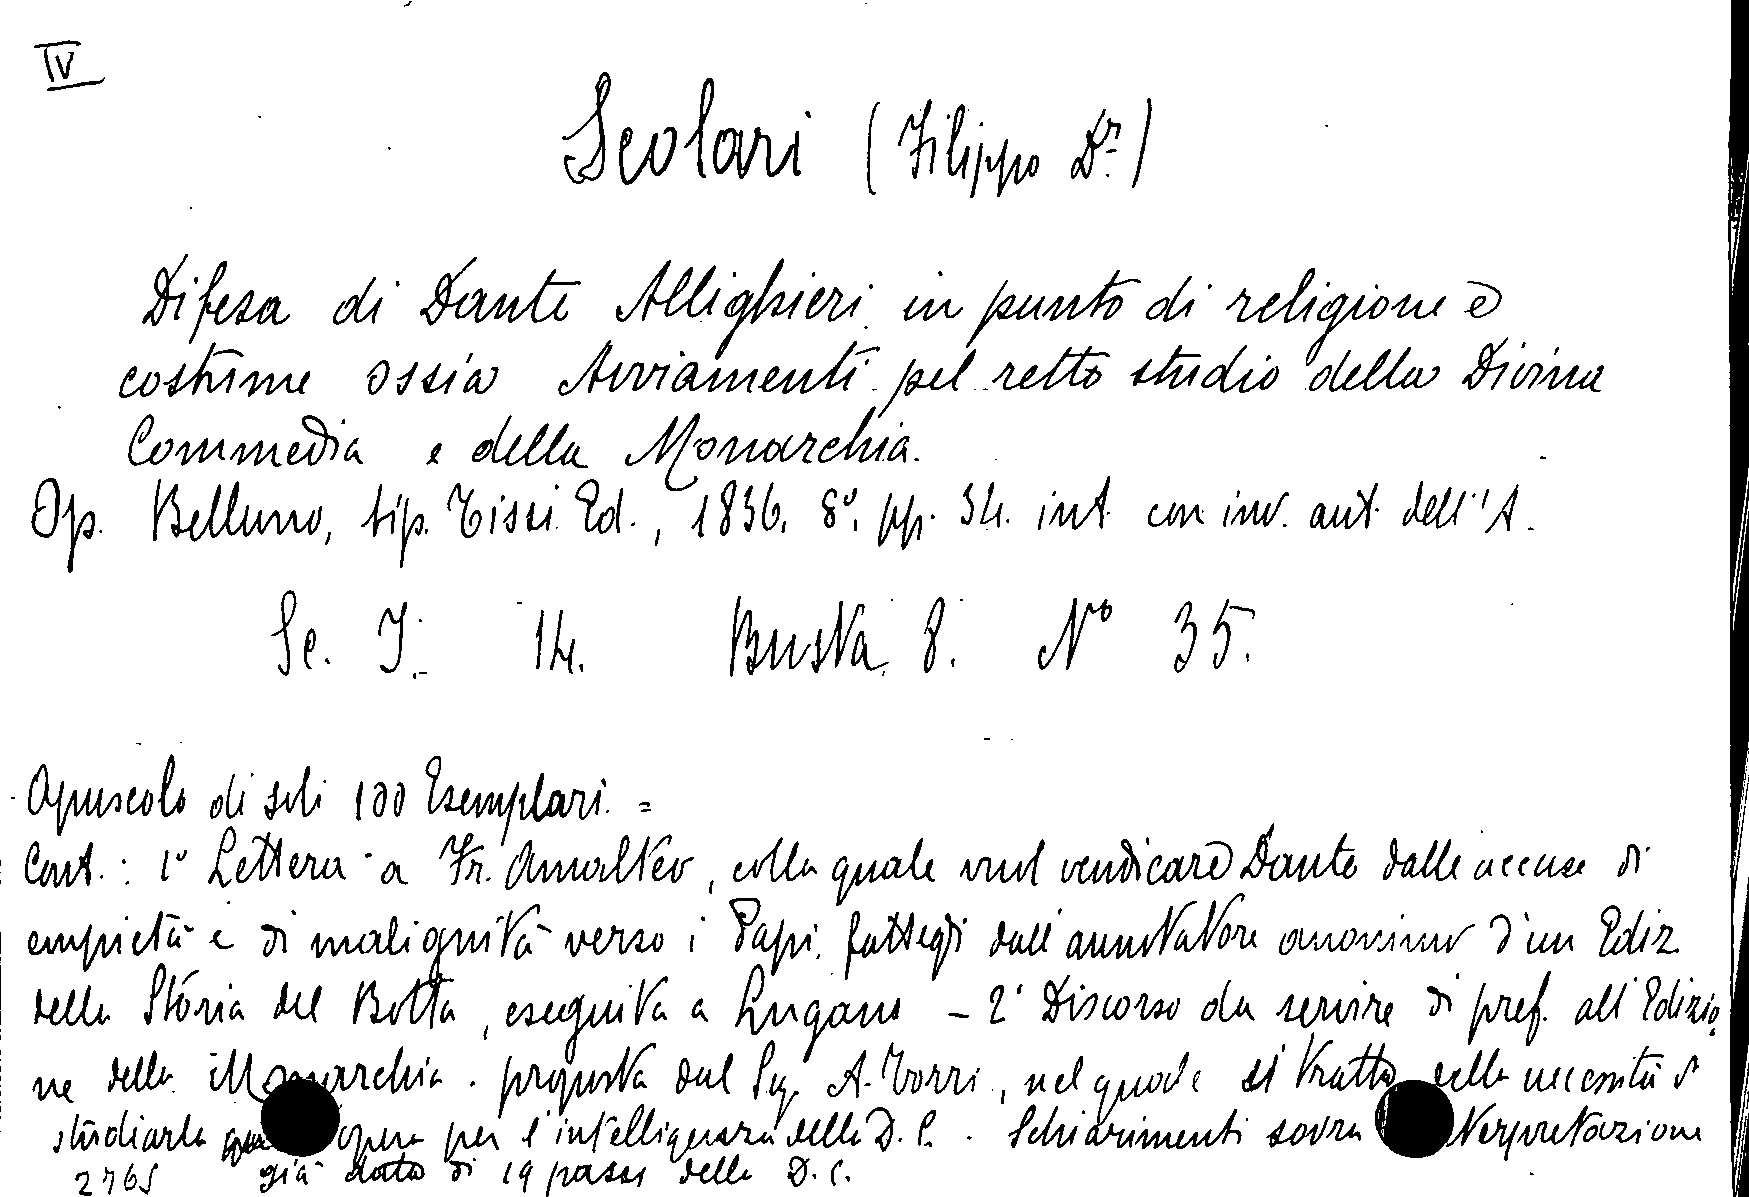 IV
Scolari (Filippo Dr.)
Difesa di Dante Allighieri in punto di religione e
costume ossia Avviamenti pel retto studio della Divina
Commedia e della Monarchia.
Op. Belluno, tip. Tissi Ed., 1836. 8º. pp. 34. int. con inv. aut. dell'A.
Sc. I. 14. Busta 8. Nº 35.
Opuscolo di soli 100 Esemplari. =
Cont.: 1º Lettera a Fr. Amalteo, colla quale vuol vendicare Dante dalle accuse di
empietà e di malignità verso i Papi, fattegli dall'annotatore anonimo d'un Ediz.
della Storia del Botta, eseguita a Lugano - 2º Discorso da servire di pref. all'Edizio
ne della Monarchia proposta dal Sig. A. Torri, nel quale si tratta della necessità di
studiarla opera per l'intelligenza della D. C. Schiarimenti sovra interpretazione
2765 già data di 19 passi della D. C.